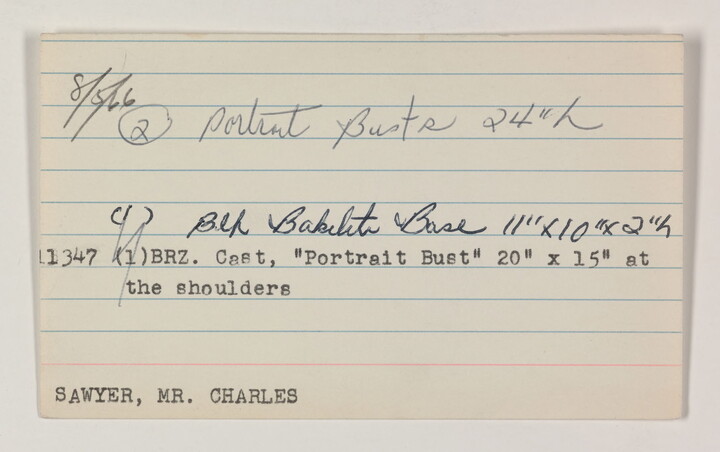 8/5/66
(2) Portrait Busts 24"h
Blk Bakelite Base 11"x10"x2"h
11347 (1)BRZ. Cast, "Portrait Bust" 20" x 15" at
the shoulders
SAWYER, MR. CHARLES